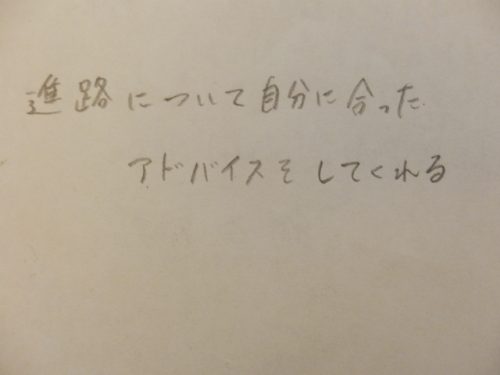 進路について自分に合った
アドバイスをしてくれる